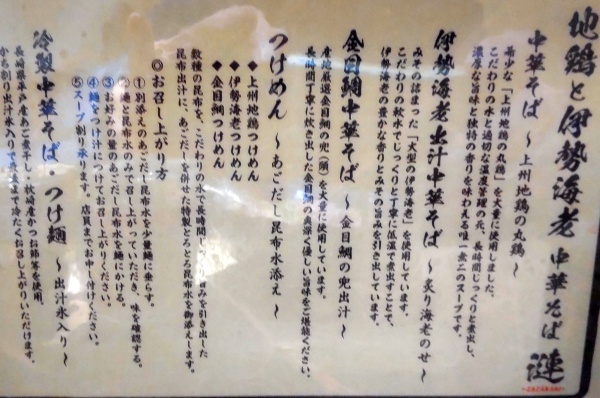 地鶏と伊勢海老 中華そば 漣
~SAZANAMI~
中華そば ～上州地鶏の丸鶏～
希少な「上州地鶏の丸鶏」を大量に使用しました。
こだわりの水と適切な温度管理の元、長時間じっくりと煮出し、
濃厚な旨味と独特の香りを味わえる唯一無二のスープです。
伊勢海老出汁中華そば ～炙り海老のせ～
みその詰まった「大型の伊勢海老」を使用しています。
こだわりの軟水でじっくりと丁寧に低温で煮出すことで、
伊勢海老の豊かな香りとみその旨みを引き出しています。
金目鯛中華そば ～金目鯛の兜出汁～
産地厳選金目鯛の兜(頭)を大量に使用しています。
長時間丁寧に炊き出した金目鯛の奥深く優しい旨味をご堪能ください。
つけめん ～あごだし昆布水添え～
◆上州地鶏つけめん
◆伊勢海老つけめん
◆金目鯛つけめん
数種の昆布を、こだわりの水で長時間じっくり旨みを引き出した
昆布出汁に、あごだしを併せた特製とろとろ昆布水を御添えします。
◎お召し上がり方
①別添えのあごだし昆布水を少量麺に垂らす。
②麺と昆布水のみでお召し上がっていただき、味を確認する。
③お好みの量のあごだし昆布水を麺にかける。
④麺をつけ汁につけてお召し上がりください。
⑤スープ割り承ります。店員までお申し付けください。
冷製中華そば・つけ麺 ～出汁氷入り～
長崎県平戸産あご煮干し・枕崎産かつお節等を使用。
かち割り出汁氷入りで最後まで冷たくお召し上がりいただけます。